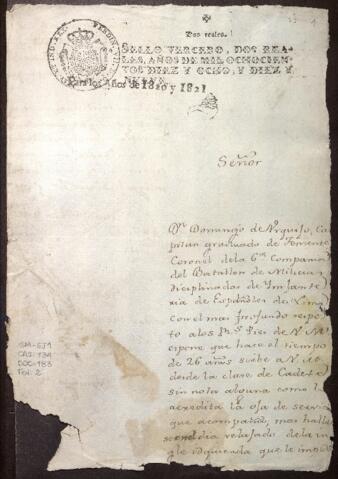 Dos reales.
SELLO TERCERO, DOS REA-
LES, AÑOS DE MIL OCHOCIEN-
TOS DIEZ Y OCHO, Y DIEZ Y
NUEVE.
Para los Años de 1820 y 1821
Señor
Dn. Domingo de Urquijo, Ca
pitan graduado de Teniente
Coronel de la 6a. Compañia
del Batallon de Milicias
disciplinadas de Infante
ria de Españoles de Lima
con el mas profundo respe
to a los Rs. Pies de V. M.
expone que hace el tiempo
de 26 años sirbe a V. M.
desde la clase de Cadete
sin nota alguna como lo
acredita la oja de servi
que acompaña, mas halla
en el dia relajado de la in
gle isquierda que le
GM-
CAJ-134
DOC-183
Fol: 2